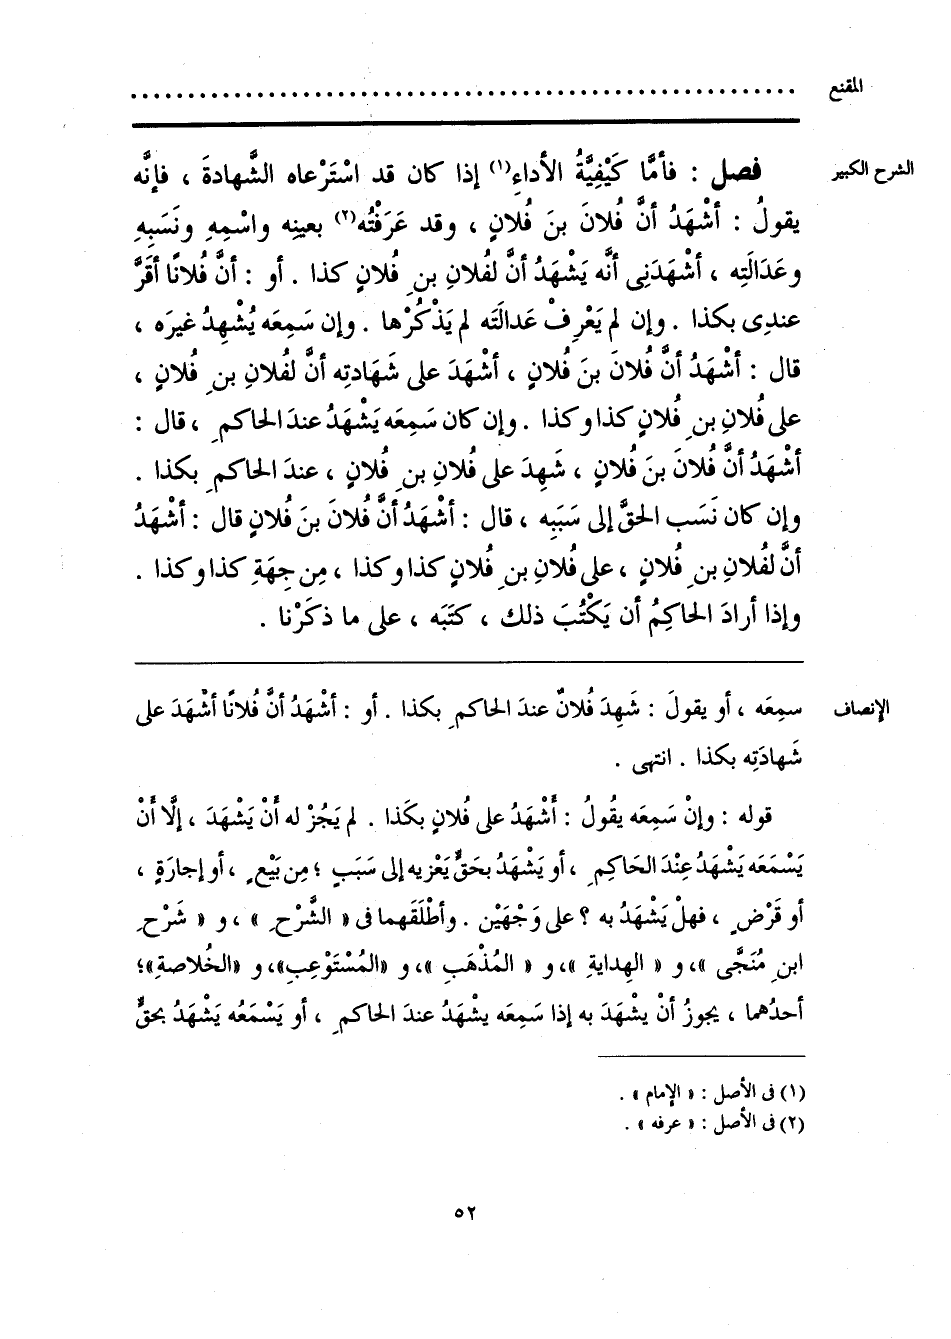 المقنع ............................................................
الشرح الكبير
فصل : فأمَّا كَيْفِيَّةُ الأداءِ(١) إذا كان قد اسْتَرْعاه الشَّهادةَ ، فإنَّه
يقولُ : أشْهَدُ أنَّ فُلانَ بنَ فُلانٍ ، وقد عَرَفْتُه(٢) بعينِه واسْمِهِ ونَسَبِهِ
وعَدَالَتِه ، أشْهَدَنِى أنَّه يَشْهَدُ أنَّ لفُلانِ بنِ فُلانٍ كذا . أو : أنَّ فُلانًا أقَرَّ
عندِى بكذا . وإن لم يَعْرِفْ عَدالَتَه لم يَذْكُرْها . وإن سَمِعَه يُشْهِدُ غيرَه ،
قال : أشْهَدُ أنَّ فُلانَ بنَ فُلانٍ ، أشْهَدَ على شَهادتِه أنَّ لفُلانِ بنِ فُلانٍ ،
على فُلانِ بنِ فُلانٍ كذا وكذا . وإن كان سَمِعَه يَشْهَدُ عندَ الحاكمِ ، قال :
أشْهَدُ أنَّ فُلانَ بنَ فُلانٍ ، شَهِدَ على فُلانِ بنِ فُلانٍ ، عندَ الحاكمِ بكذا .
وإن كان نَسَب الحقَّ إلى سَبَبِه ، قال : أشْهَدُ أنَّ فُلانَ بنَ فُلانٍ قال : أشْهَدُ
أنَّ لفُلانِ بنِ فُلانٍ ، على فُلانِ بنِ فُلانٍ كذا وكذا ، مِن جِهَةِ كذا وكذا .
وإذا أرادَ الحاكِمُ أن يَكْتُبَ ذلك ، كتَبَه ، على ما ذكَرْنا .
الإنصاف
سمِعَه ، أو يقولَ : شَهِدَ فُلانٌ عندَ الحاكمِ بكذا . أو : أشْهَدُ أنَّ فُلانًا أشْهَدَ على
شَهادَتِه بكذا . انتهى .
قوله : وإنْ سَمِعَه يقُولُ : أَشْهَدُ على فُلانٍ بكَذا . لم يَجُزْ له أَنْ يَشْهَدَ ، إلَّا أَنْ
يَسْمَعَه يَشْهَدُ عِنْدَ الحَاكمِ ، أو يَشْهَدُ بحَقٍّ يَعْزِيه إلى سَبَبٍ ؛ مِن بَيْعٍ ، أو إجارَةٍ ،
أو قَرْضٍ ، فهلْ يَشْهَدُ به ؟ على وَجْهَيْن . وأطْلَقَهما فى « الشَّرْحِ » ، و « شَرْحِ
ابنِ مُنَجَّى » ، و « الهِدايةِ » ، و « المُذْهَبِ » ، و «المُسْتَوْعِبِ»، و «الخُلاصةِ»؛
أحدُهما ، يجوزُ أنْ يشْهَدَ به إذا سَمِعَه يشْهَدُ عندَ الحاكمِ ، أو يَسْمَعُه يَشْهَدُ بحقٍّ
(١) فى الأصل : « الإمام » .
(٢) فى الأصل : « عرفه » .
٥٢